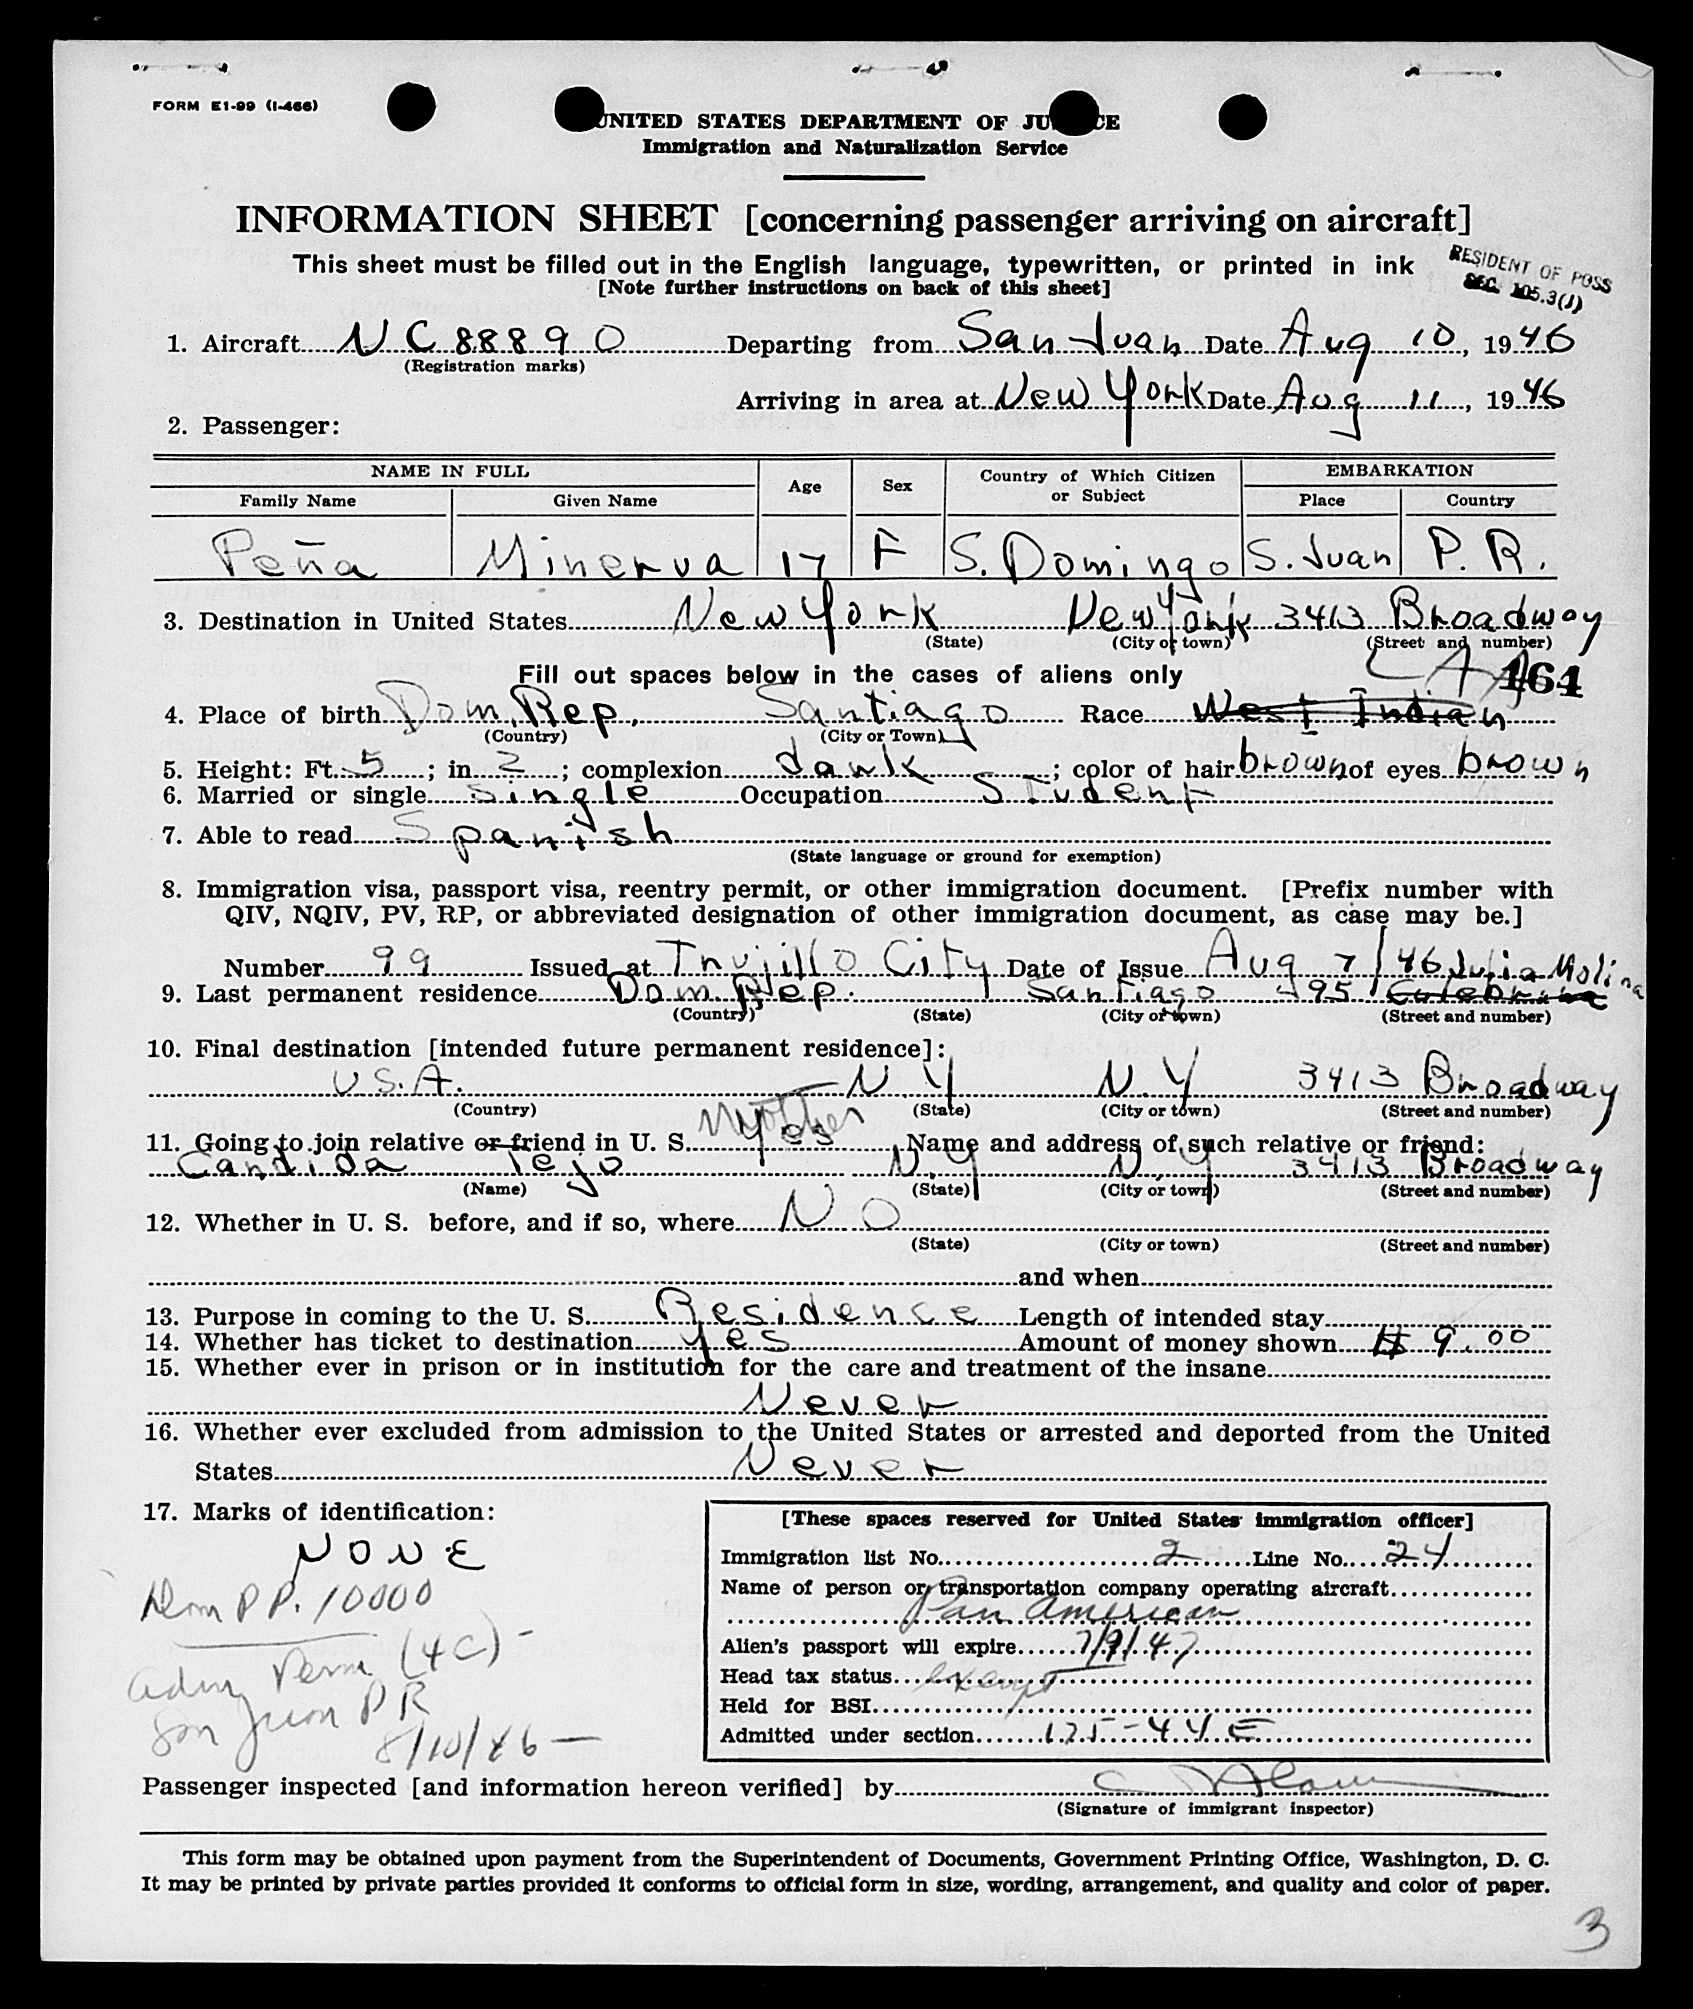 FORM E1-99 (I-466)
UNITED STATES DEPARTMENT OF JU CE
Immigration and Naturalization Service
INFORMATION SHEET [concerning passenger arriving on aircraft]
This sheet must be filled out in the English language, typewritten, or printed in ink
[Note further instructions on back of this sheet]
RESIDENT OF POSS
SEC. 105.3(J)
1. Aircraft NC88890 Departing from San Juan Date Aug 10, 1946
(Registration marks)
Arriving in area at New York Date Aug 11, 1946
2. Passenger:
NAME IN FULL Age Sex Country of Which Citizen or Subject EMBARKATION
Family Name Given Name Place Country
Peña Minerva 17 F S. Domingo S. Juan P.R.
3. Destination in United States New York New York 3413 Broadway
(State) (City or town) (Street and number)
Fill out spaces below in the cases of aliens only 164
4. Place of birth Dom. Rep. Santiago Race West Indian
(Country) (City or Town)
5. Height: Ft. 5; in. 2; complexion dark; color of hair brown of eyes brown
6. Married or single single Occupation Student
7. Able to read Spanish
(State language or ground for exemption)
8. Immigration visa, passport visa, reentry permit, or other immigration document. [Prefix number with
QIV, NQIV, PV, RP, or abbreviated designation of other immigration document, as case may be.]
Number 99 Issued at Trujillo City Date of Issue Aug 7/46 Julia Molina
9. Last permanent residence Dom Rep. Santiago 95
(Country) (State) (City or town) (Street and number)
10. Final destination [intended future permanent residence]:
U.S.A. N.Y N.Y 3413 Broadway
(Country) (State) (City or town) (Street and number)
Mother
11. Going to join relative or friend in U. S. yes Name and address of such relative or friend:
Candida Tejo N.Y N.Y 3413 Broadway
(Name) (State) (City or town) (Street and number)
12. Whether in U. S. before, and if so, where NO
(State) (City or town) (Street and number)
and when
13. Purpose in coming to the U. S. Residence Length of intended stay
14. Whether has ticket to destination yes Amount of money shown $ 9.00
15. Whether ever in prison or in institution for the care and treatment of the insane
Never
16. Whether ever excluded from admission to the United States or arrested and deported from the United
States Never
17. Marks of identification:
NONE
Dom PP. 10000
Adm Perm (4C)-
San Juan PR
8/10/46-
[These spaces reserved for United States immigration officer]
Immigration list No. 2 Line No. 24
Name of person or transportation company operating aircraft
Pan American
Alien's passport will expire 7/9/47
Head tax status exempt
Held for BSI
Admitted under section 125-44E
Passenger inspected [and information hereon verified] by
(Signature of immigrant inspector)
This form may be obtained upon payment from the Superintendent of Documents, Government Printing Office, Washington, D. C.
It may be printed by private parties provided it conforms to official form in size, wording, arrangement, and quality and color of paper.
3